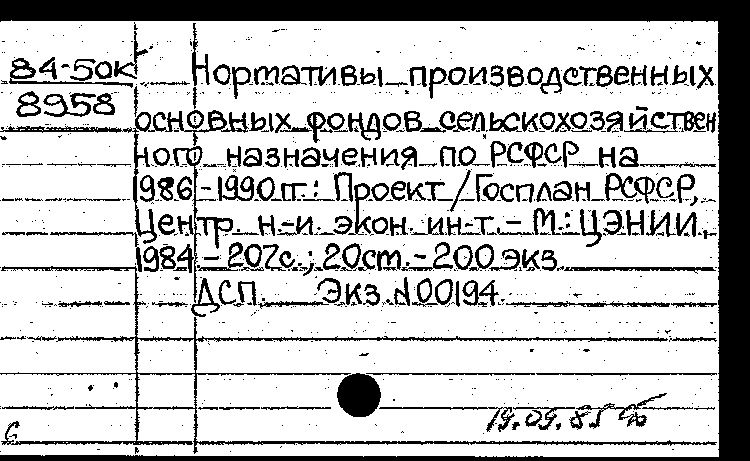 84-50к Нормативы производственных
8958 основных фондов сельскохозяйствен
ного назначения по РСФСР на
1986-1990 гг.: Проект / Госплан РСФСР,
Центр. н-и. экон. ин-т. - М.: ЦЭНИИ,
1984 - 207с.; 20см. - 200 экз
ДСП. Экз. N 00194.
19.09.85
с